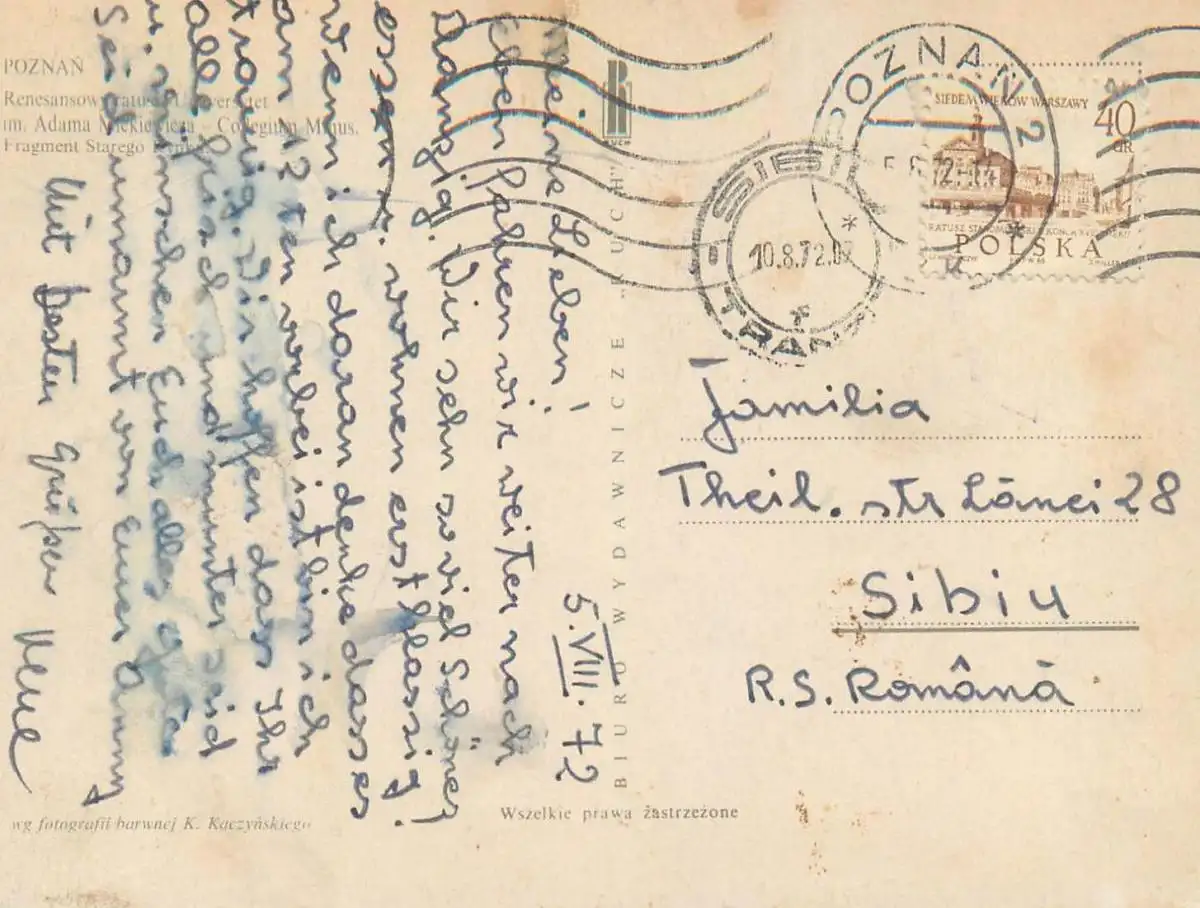 POZNAŃ
Renesansowy ratusz. Uniwersytet
im. Adama Mickiewicza - Collegium Minus.
Fragment Starego Rynku
5.VIII.72
Meine Lieben!
Eben fahren wir weiter nach
Danzig. Wir sehn soviel Schönes
wohnen erstklassig!
wenn ich daran denke dass es
am 12ten vorbei ist bin ich
traurig. Wir hoffen dass Ihr
alle frisch und munter seid
u. wünschen Euch alles
Seid umarmt von Euer Anny
Mit besten Grüßen
wg fotografii barwnej K. Kaczyńskiego
BIURO WYDAWNICZE "RUCH"
RUCH
Wszelkie prawa zastrzeżone
POZNAŃ 2
SIBIU
10.8.72.07
TRANZ
SIEDEM WIEKÓW WARSZAWY
40
GR
POLSKA
Familia
Theil. str Lânei 28
Sibiu
R.S. Românâ